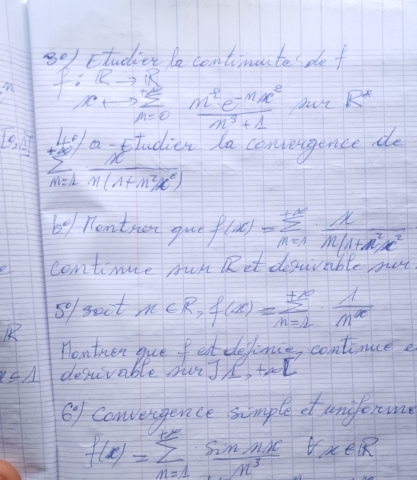 3°/ Etudier la continuité de f
f : ℝ → ℝ
x ↦ +∞ Σ n=0 n² e^-nx² / n³ + 1 sur ℝ*
4°/ a - Etudier la convergence de
+∞ Σ n=1 x / n(1+n²x²)
b°/ Montrer que f(x) = +∞ Σ n=1 x / n(1+n²x²
continue sur ℝ et dérivable sur
5°/ soit x ∈ ℝ, f(x) = +∞ Σ n=1 1 / n^x
Montrer que f est définie, continue e
dérivable sur ]1, +∞[
6°/ Convergence simple et uniforme
f(x) = +∞ Σ n=1 sin nx / n³ ∀ x ∈ ℝ